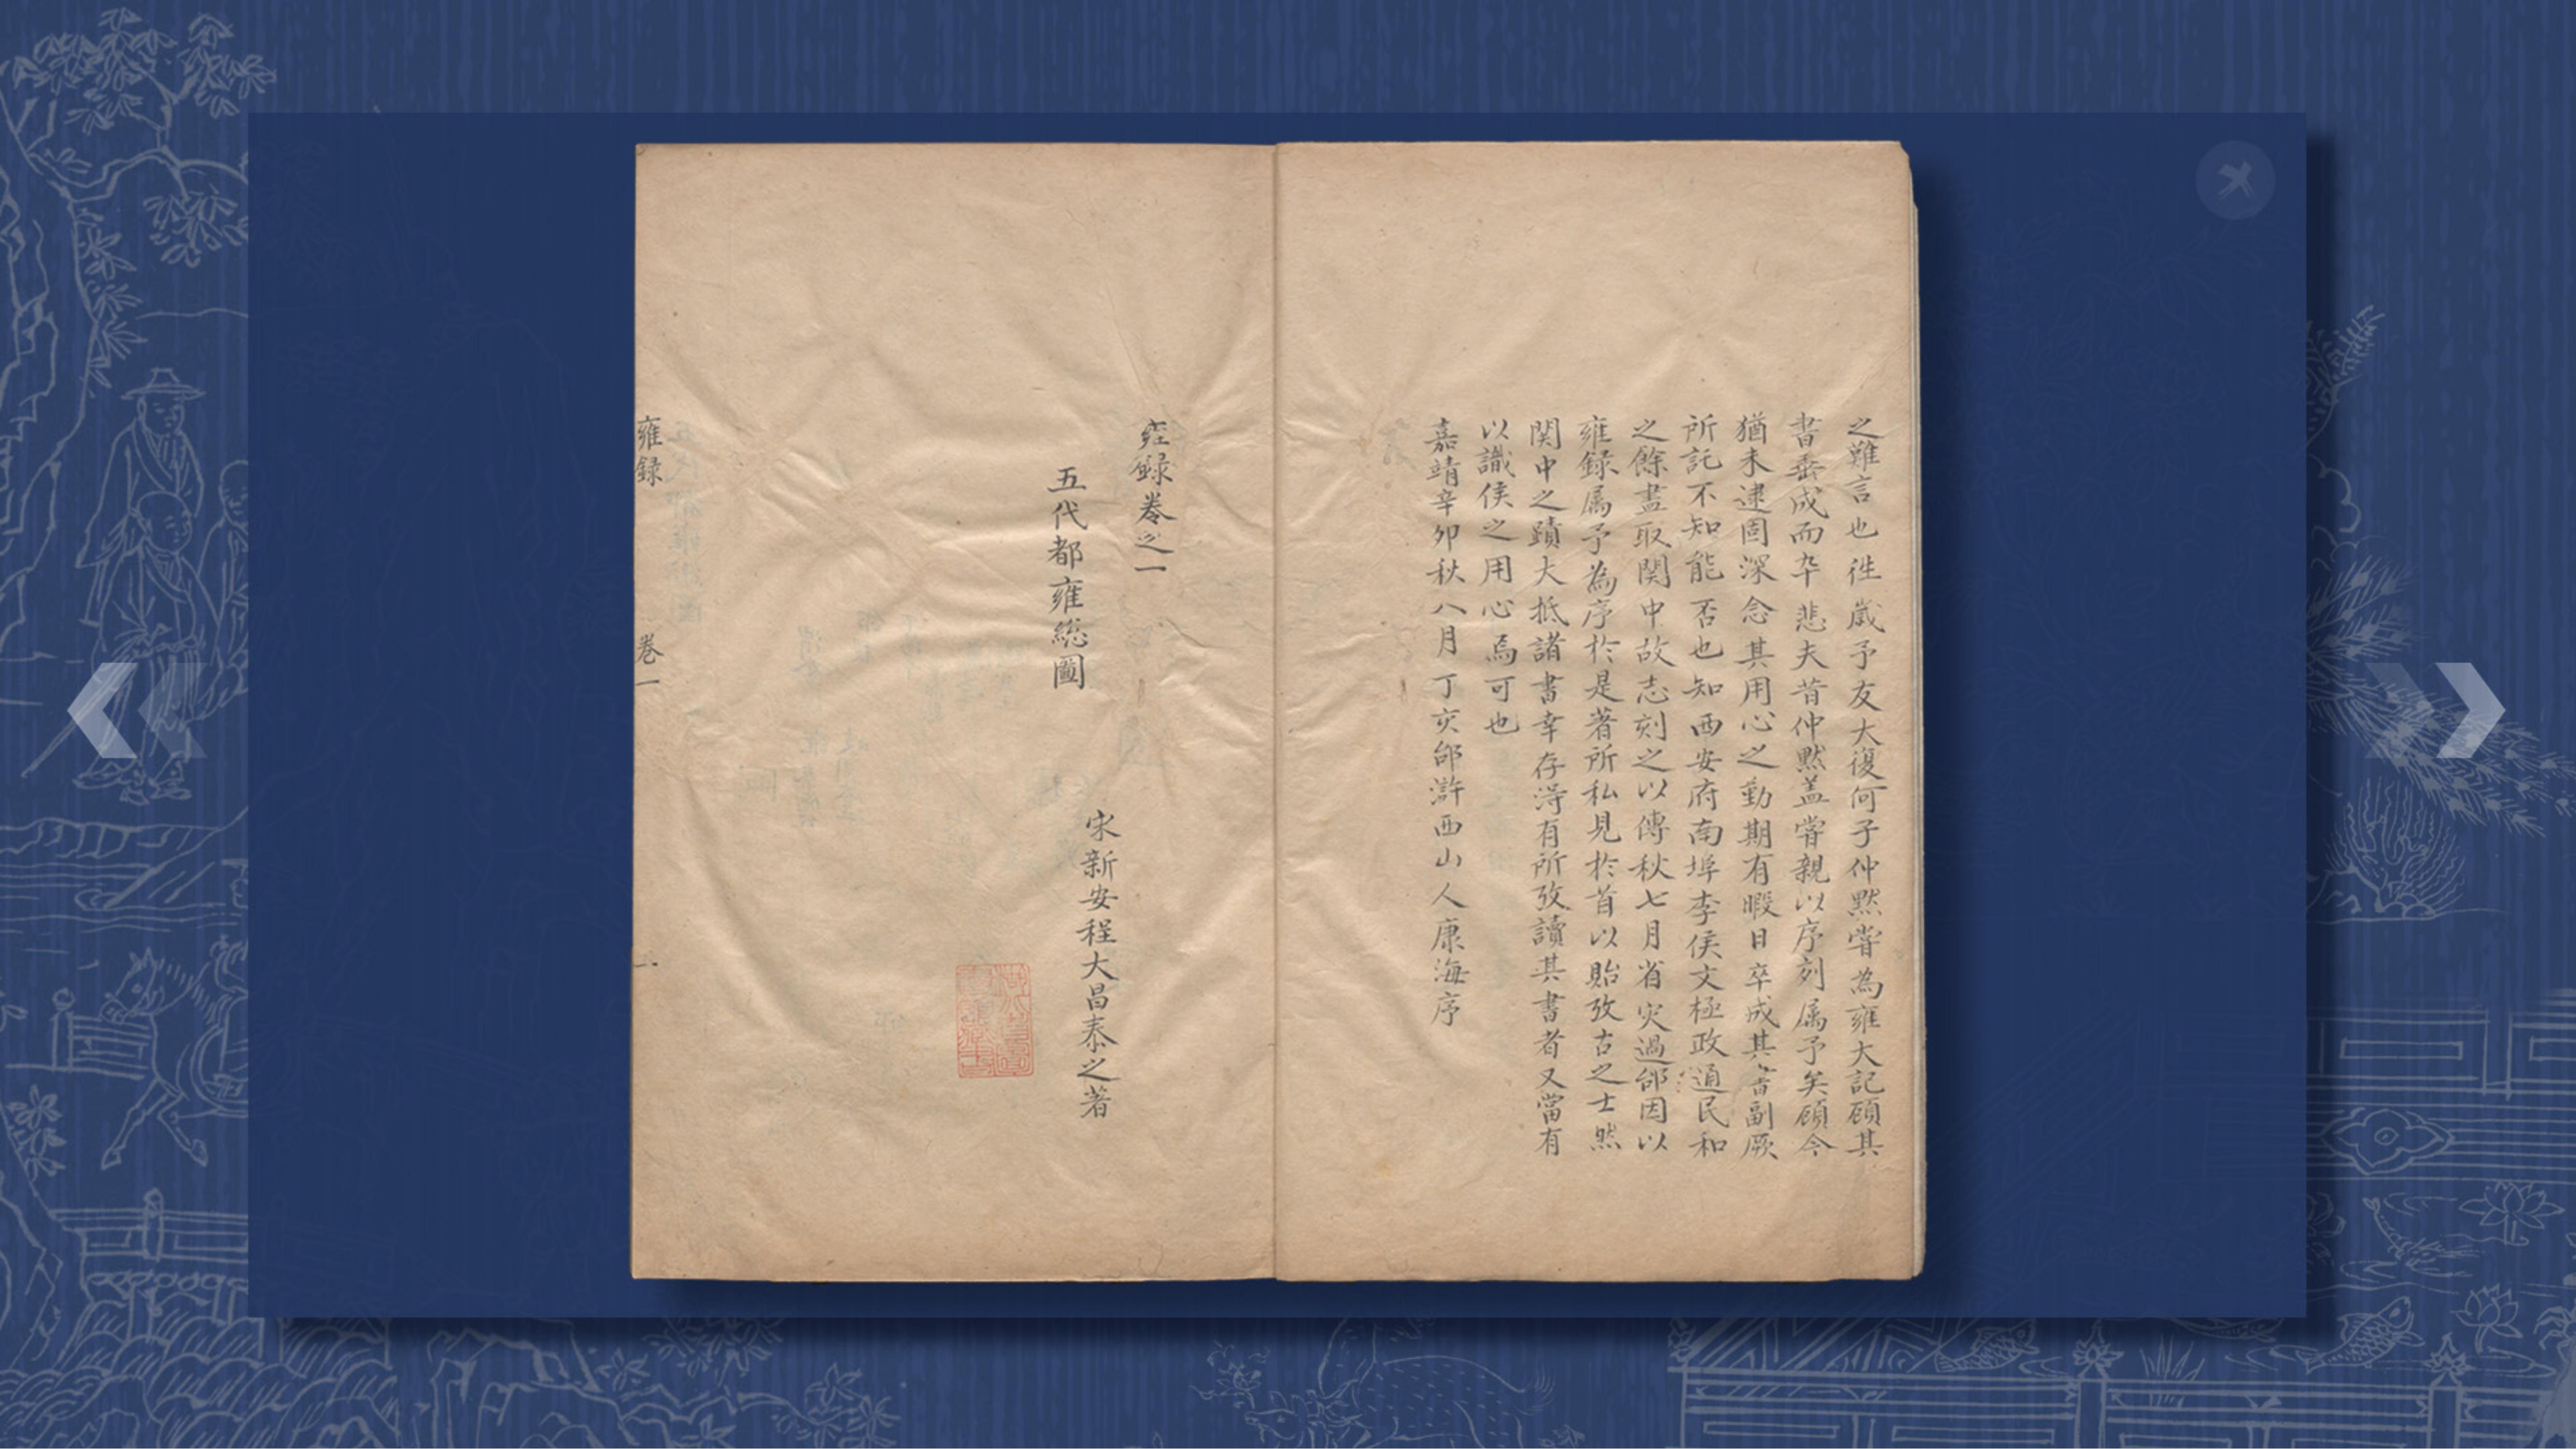 之難言也徃歲予友大復何子仲黙嘗為雍大記顧其
書垂成而卒悲夫昔仲黙盖嘗親以序刻属予矣顧今
猶未逮固深念其用心之勤期有暇日卒成其書副厥
所託不知能否也知西安府南埠李侯文極政通民和
之餘盡取関中故志刻之以傳秋七月省灾過邰因以
雍録属予為序於是著所私見於首以貽攷古之士然
関中之蹟大抵諸書幸存淂有所攷讀其書者又當有
以識侯之用心焉可也
嘉靖辛卯秋八月丁亥邰滸西山人康海序
雍録卷之一
宋新安程大昌泰之著
五代都雍総圖
雍録 卷一